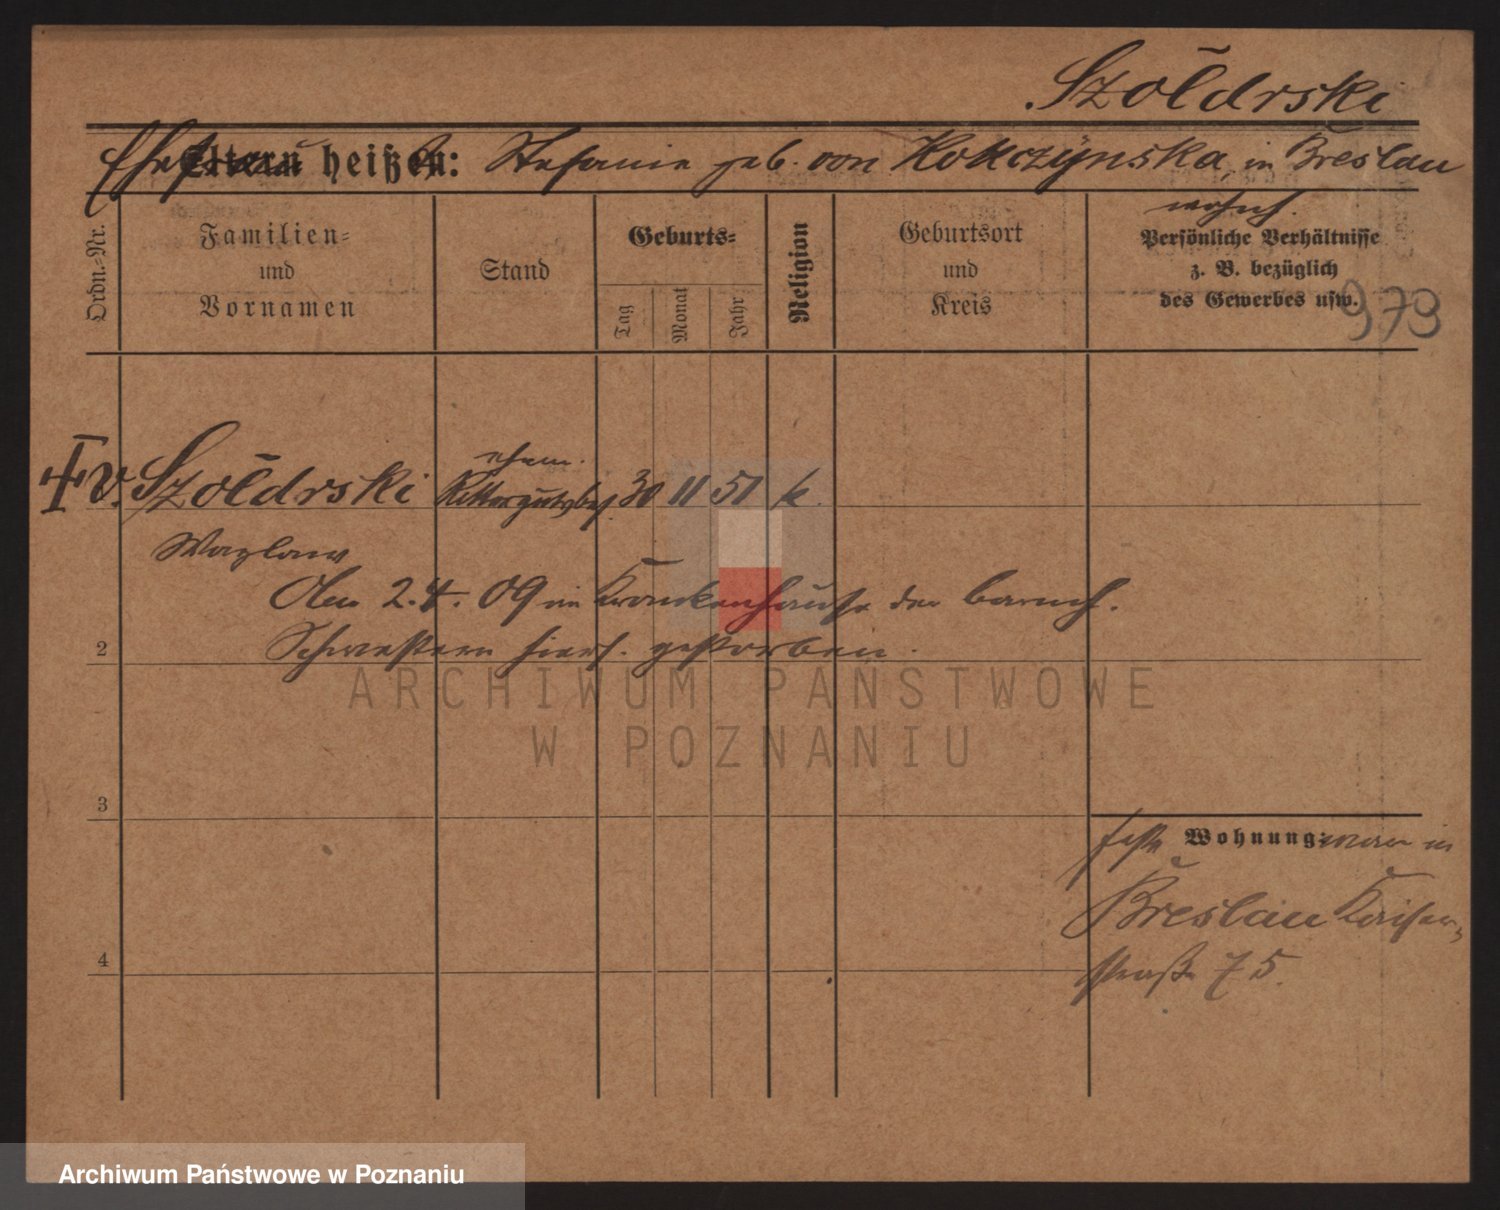 Szołdrski
Ehefrau Eltern heißen: Stefanie geb. von Kokczynska, in Breslau
wohnh.
Ordn.-Nr.
Familien-
und
Vornamen
Stand
Geburts-
Tag
Monat
Jahr
Religion
Geburtsort
und
Kreis
Persönliche Verhältnisse
z. B. bezüglich
des Gewerbes usw.
973
v. Szołdrski ehem. Rittergutsbes. 30 11 51 k.
Wazlaw
Am 2.4.09 im Krankenhause der barmh.
2 Schwestern hiers. gestorben.
ARCHIWUM PAŃSTWOWE
W POZNANIU
3
feste Wohnung: war in
Breslau Kaiser-
4 straße 75.
Archiwum Państwowe w Poznaniu